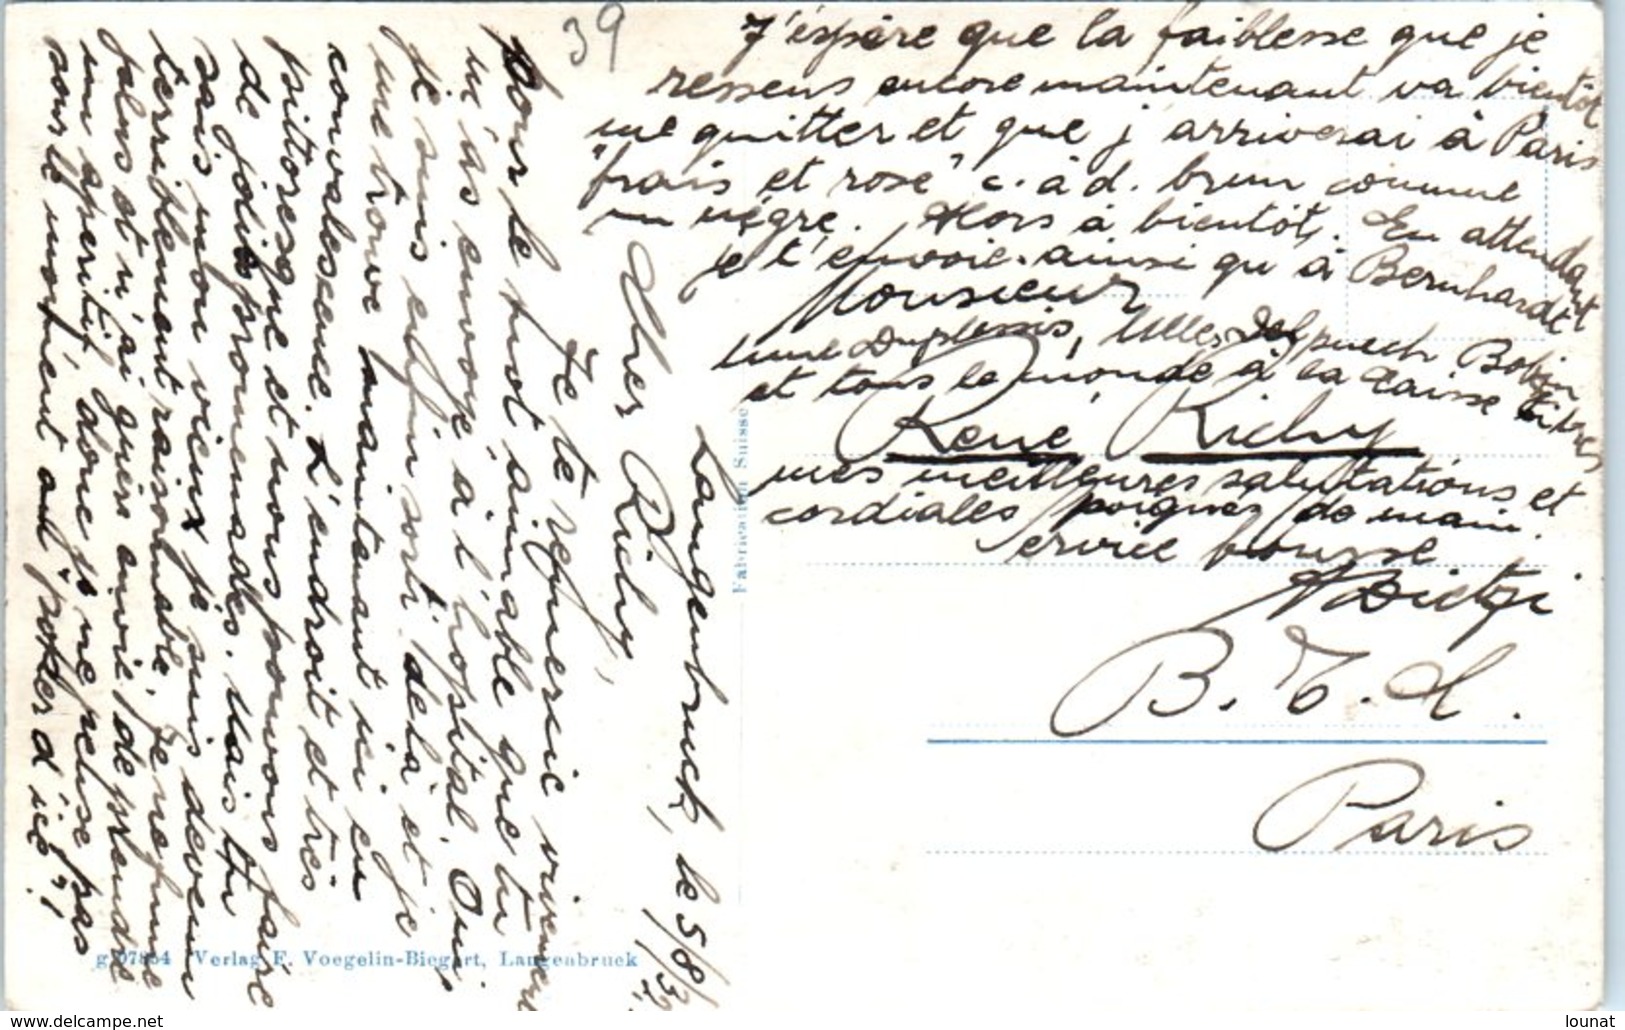 39
Langenbruck, le 5/8/32
Cher Richy,
Je te remercie vivement
pour le mot aimable que tu
m'as envoyé à l'hopital. Oui,
je suis enfin sorti de là et je
me trouve maintenant ici en
convalescence. L'endroit et très
pittoresque et nous pouvons faire
de jolies promenades. Mais tu
sais mon vieux je suis devenu
terriblement raisonnable. Je ne fume
plus et n'ai guère envie de prendre
un aperitif donc je ne refuse pas
sous le montient au "poker d'ice"!
J'éspére que la faiblesse que je
ressens encore maintenant va bientôt
me quitter et que j'arriverai à Paris
"frais et rose" c. à d. brun comme
un nègre. Alors à bientôt. En attendant
je t'envoie ainsi qu'à Bernhardt
Monsieur
Mme Duplessis, Mlles Delpuech Bobin
et tous le monde à la Caisse Titres
René Richy
mes meilleures salutations et
cordiales poignés de main.
Service bourse
B. T. C.
Paris
Fabrication Suisse
g 07854 Verlag F. Voegelin-Biegert, Langenbruck
www.delcampe.net
lounat